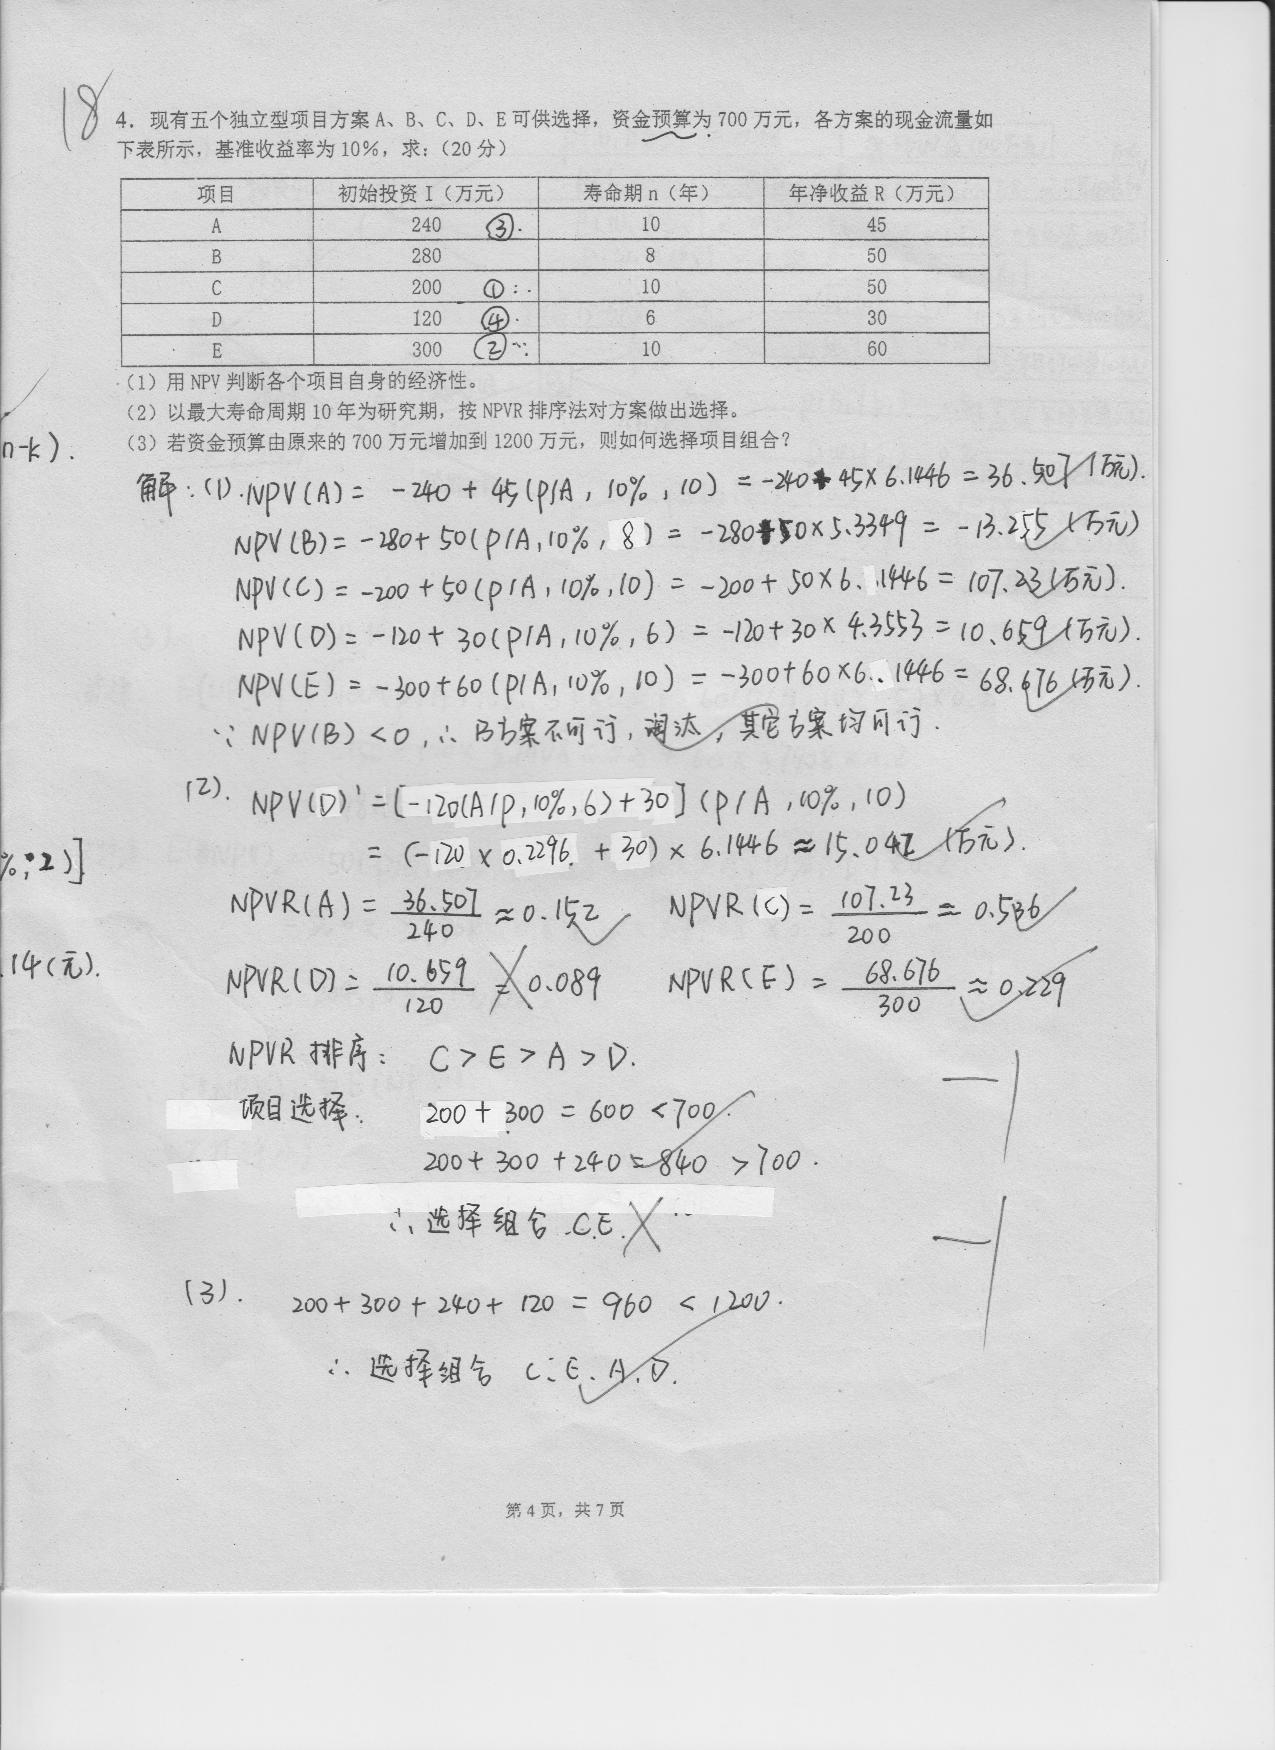 18
4．现有五个独立型项目方案 A、B、C、D、E 可供选择，资金预算为 700 万元，各方案的现金流量如
下表所示，基准收益率为 10%，求：（20 分）
项目 初始投资 I（万元） 寿命期 n（年） 年净收益 R（万元）
A 240 ③. 10 45
B 280 8 50
C 200 ① 10 50
D 120 ④ 6 30
E 300 ② 10 60
（1）用 NPV 判断各个项目自身的经济性。
（2）以最大寿命周期 10 年为研究期，按 NPVR 排序法对方案做出选择。
n-k).
（3）若资金预算由原来的 700 万元增加到 1200 万元，则如何选择项目组合？
解：(1). NPV(A) = -240 + 45(P/A, 10%, 10) = -240+45×6.1446 = 36.507(万元).
NPV(B) = -280+50(P/A,10%, 8) = -280+50×5.3349 = -13.255 (万元)
NPV(C) = -200+50(P/A,10%,10) = -200+50×6.1446 = 107.23(万元).
NPV(D) = -120+30(P/A,10%,6) = -120+30×4.3553 = 10.659(万元).
NPV(E) = -300+60(P/A,10%,10) = -300+60×6.1446 = 68.676(万元).
∵ NPV(B) < 0, ∴ B方案不可行, 淘汰, 其它方案均可行.
(2). NPV(D)' = [-120(A/P,10%,6)+30](P/A,10%,10)
%,2)]
= (-120×0.2296+30)×6.1446 ≈ 15.042 (万元).
NPVR(A) = 36.507/240 ≈ 0.152 NPVR(C) = 107.23/200 ≈ 0.536
.14(元).
NPVR(D) = 10.659/120 = 0.089 NPVR(E) = 68.676/300 ≈ 0.229
NPVR 排序: C > E > A > D.
-1
项目选择. 200+300 = 600 < 700.
200+300+240 = 840 > 700.
∴ 选择组合 C.E.
-1
(3). 200+300+240+120 = 960 < 1200.
∴ 选择组合 C、E、A、D.
第 4 页，共 7 页